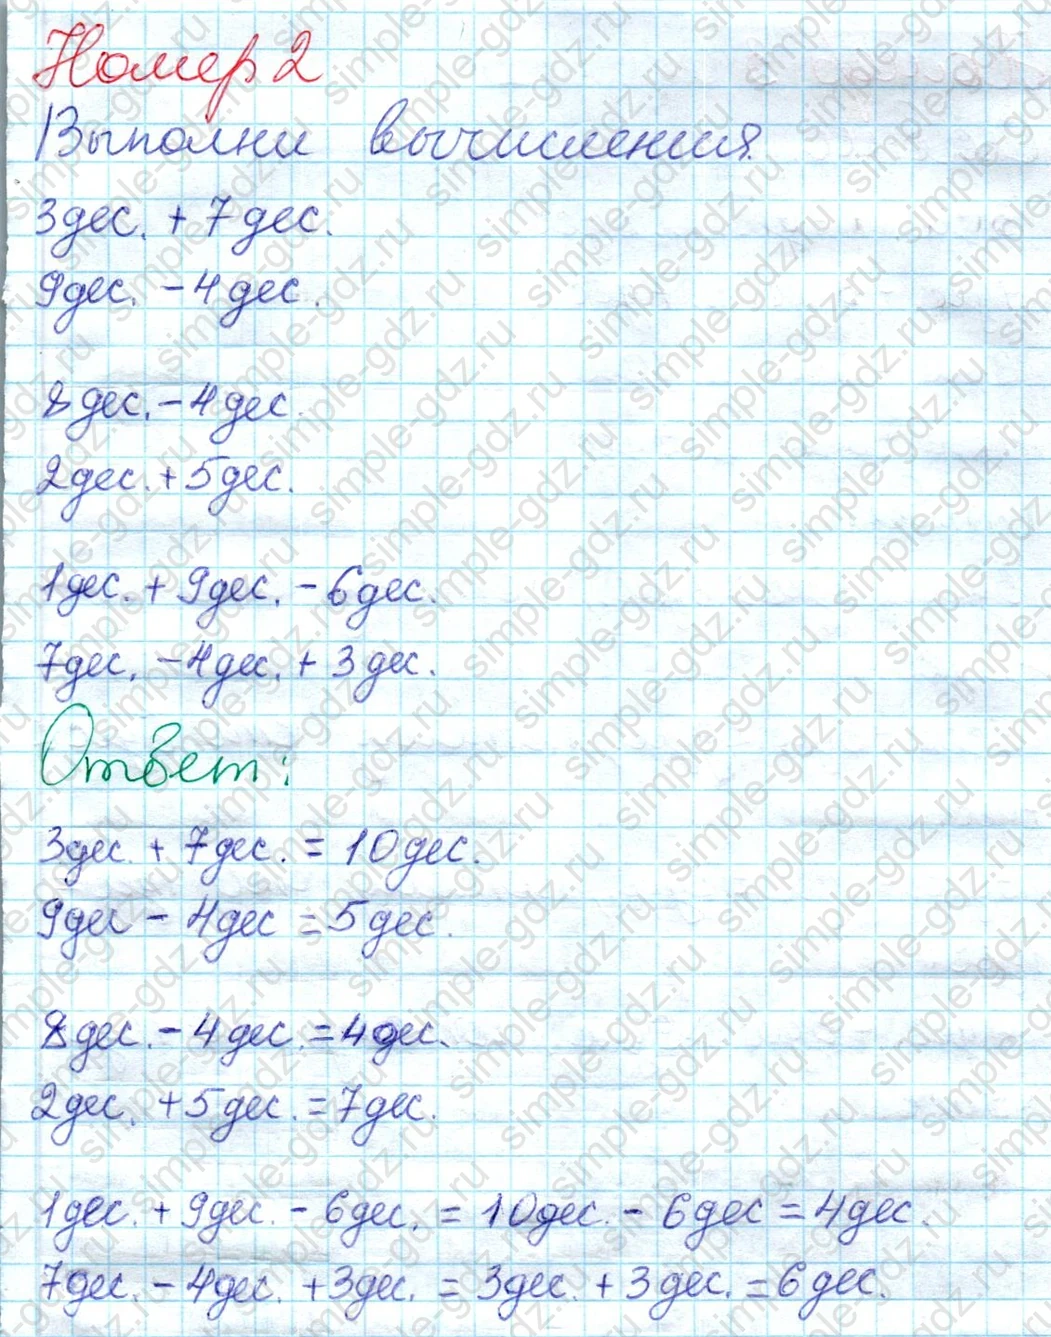 Номер 2
Выполни вычисления.
3дес. + 7дес.
9дес. - 4дес.
8дес. - 4дес.
2дес. + 5дес.
1дес. + 9дес. - 6дес.
7дес. - 4дес. + 3дес.
Ответ:
3дес. + 7дес. = 10дес.
9дес - 4дес = 5дес.
8дес. - 4дес. = 4дес.
2дес. + 5дес. = 7дес.
1дес. + 9дес. - 6дес. = 10дес. - 6дес = 4дес.
7дес. - 4дес. + 3дес. = 3дес. + 3дес. = 6дес.
simple-gdz.ru